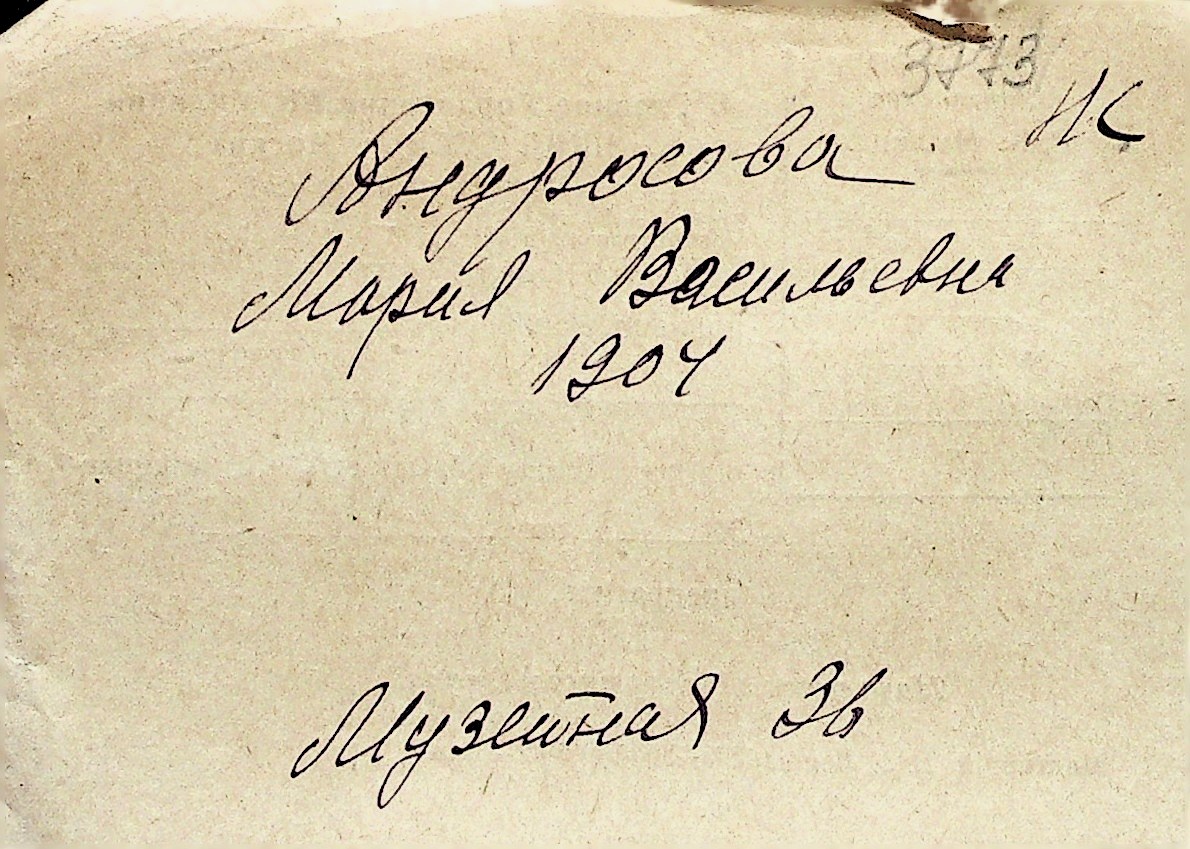 3773
НС
Андросова
Мария Васильевна
1904
Музейная 3в